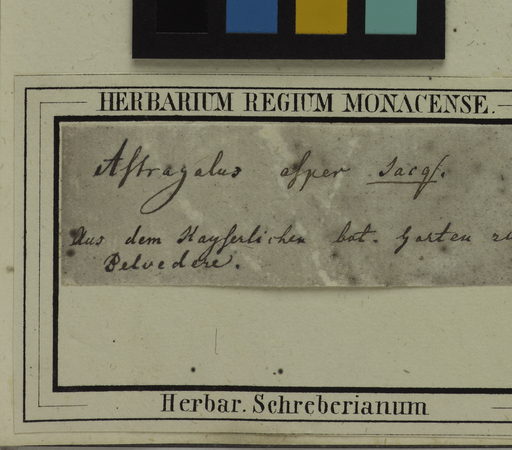 HERBARIUM REGIUM MONACENSE.
Aſtragalus aſper Jacq.
Aus dem Kayſerlichen bot. Garten zu
Belvedere.
Herbar. Schreberianum